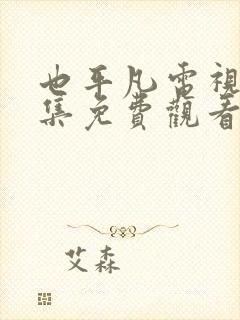 也平凡電視
集免費觀看
艾森